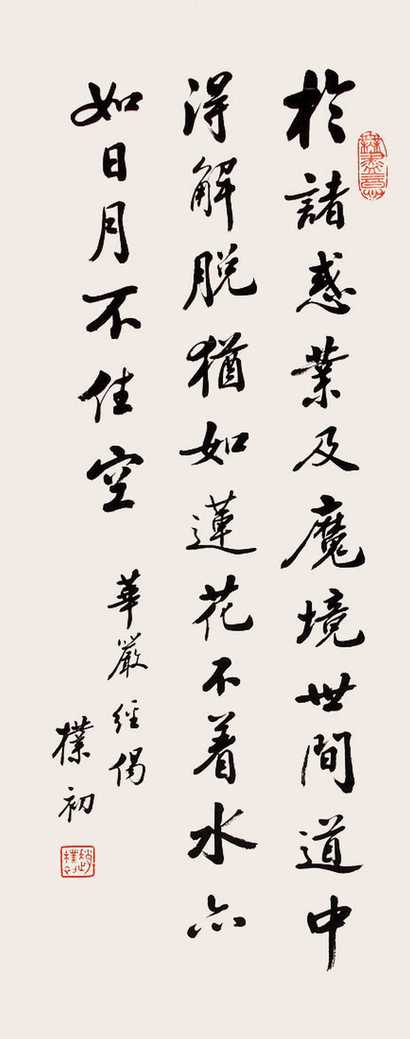 於諸惑業及魔境世間道中
得解脱猶如蓮花不着水亦
如日月不住空
華嚴經偈
樸初
趙樸初